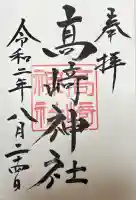 奉拝
高崎神社
令和二年八月二十四日